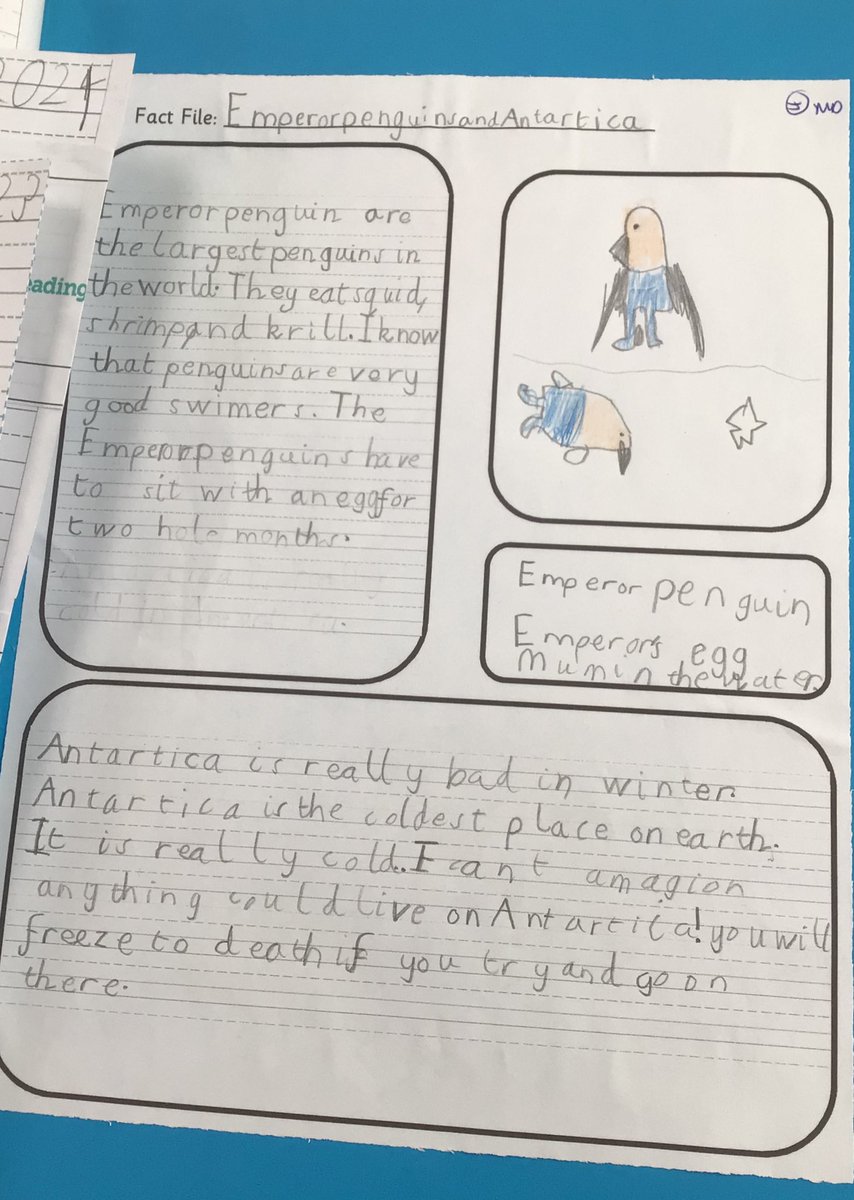 2021
Fact File: Emperor penguins and Antartica
MO
eading
Emperor penguin are
the largest penguins in
the world. They eat squid,
shrimp and krill. I know
that penguins are very
good swimers. The
Emperor penguins have
to sit with an egg for
two hole months.
Emperor penguin
Emperors egg
mum in the water.
Antartica is really bad in winter.
Antartica is the coldest place on earth.
It is really cold. I can't amagion
anything could live on Antartica! you will
freeze to death if you try and go on
there.